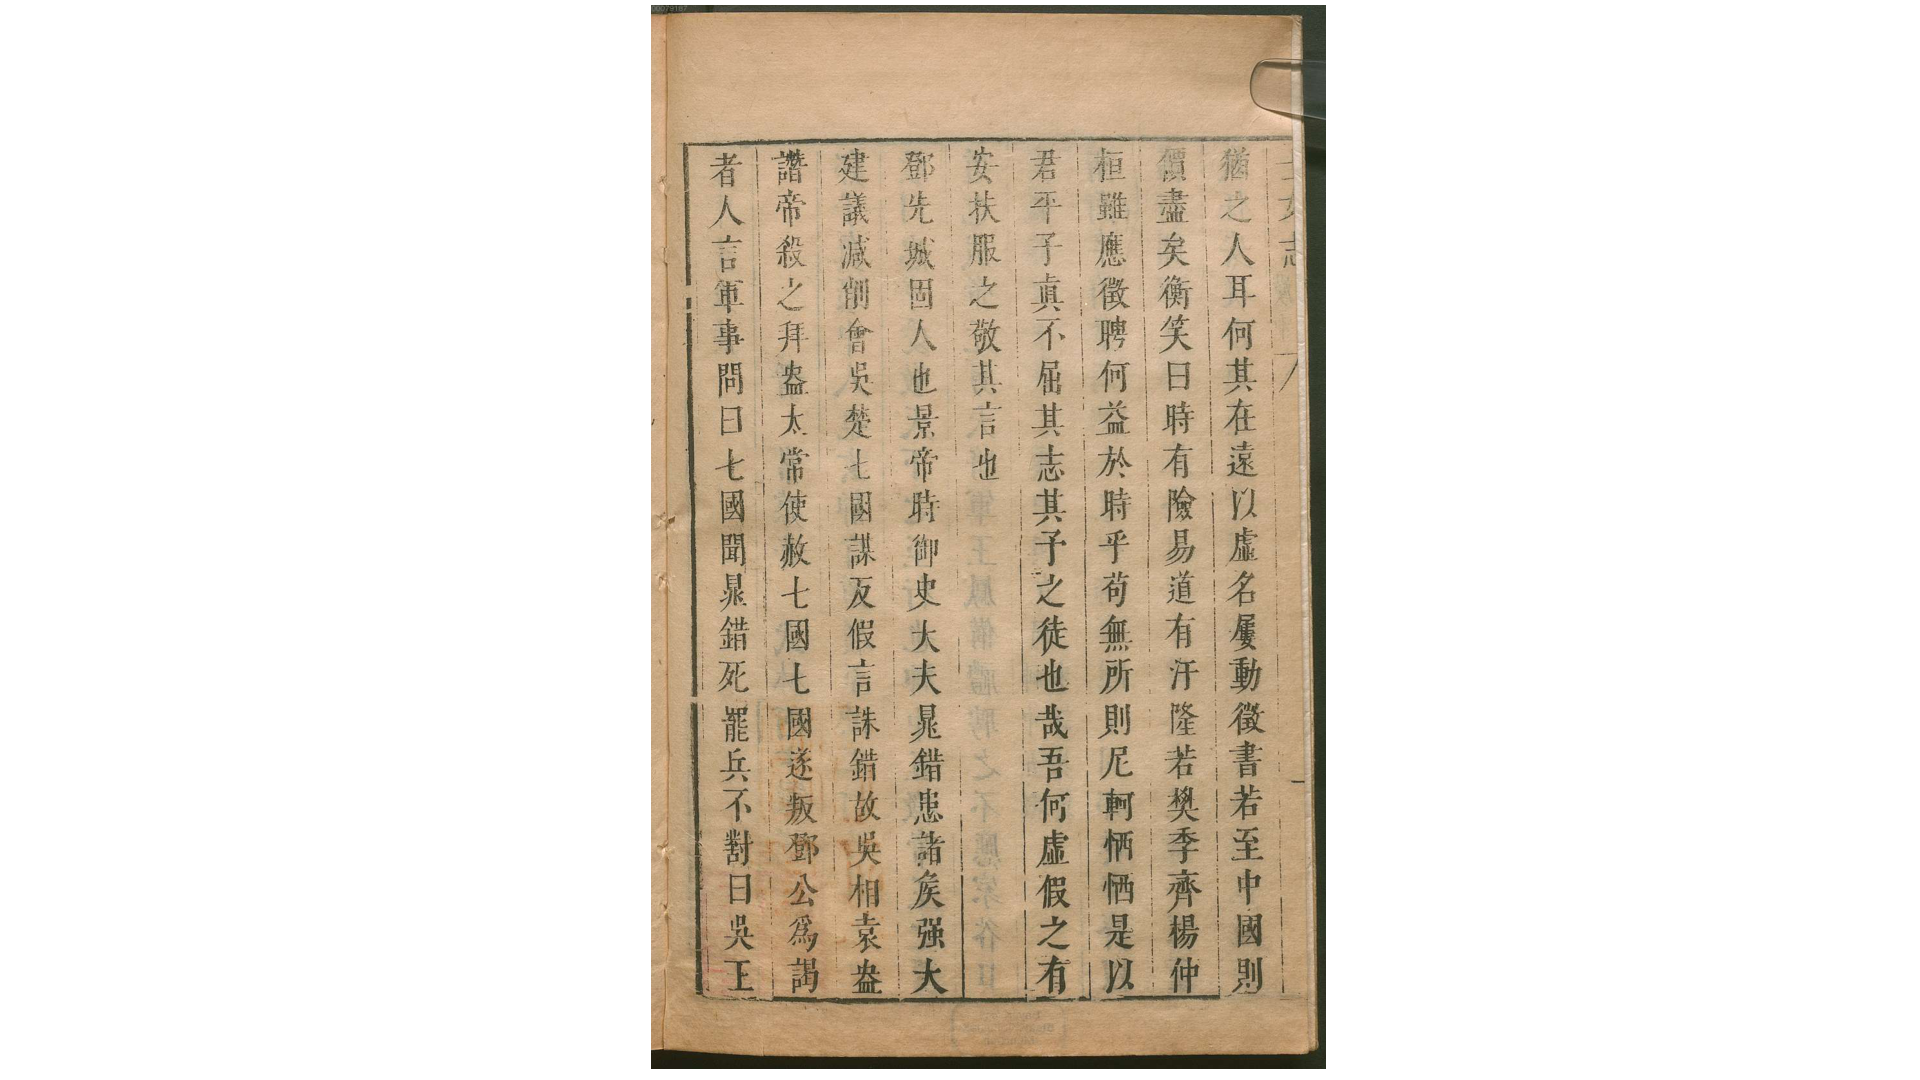 猶之人耳何其在遠以虛名屢動徵書若至中國則
價盡矣衡笑曰時有險易道有汙隆若樊季齊楊仲
桓雖應徵聘何益於時乎苟無所則尼軻恓恓是以
君平子真不屈其志其予之徒也哉吾何虛假之有
安扶服之敬其言也
鄧先城固人也景帝時御史大夫鼂錯患諸矦强大
建議減削會吳楚七國謀反假言誅錯故吳相袁盎
譖帝殺之拜盎太常使赦七國七國遂叛鄧公爲謁
者人言軍事問曰七國聞鼂錯死罷兵不對曰吳王